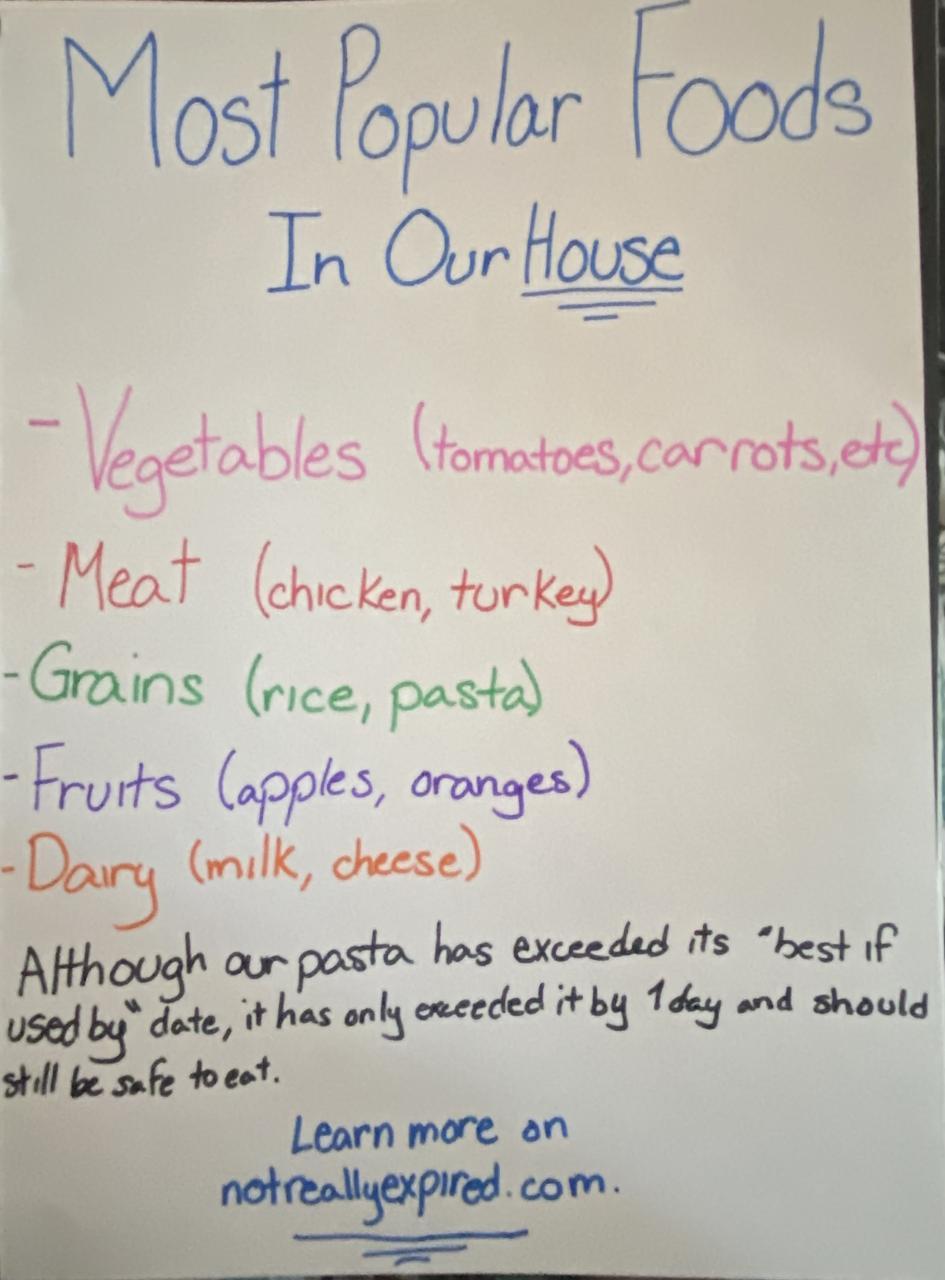 Most Popular Foods
In Our House
- Vegetables (tomatoes, carrots, etc)
- Meat (chicken, turkey)
- Grains (rice, pasta)
- Fruits (apples, oranges)
- Dairy (milk, cheese)
Although our pasta has exceeded its "best if
used by" date, it has only exceeded it by 1 day and should
still be safe to eat.
Learn more on
notreallyexpired.com.